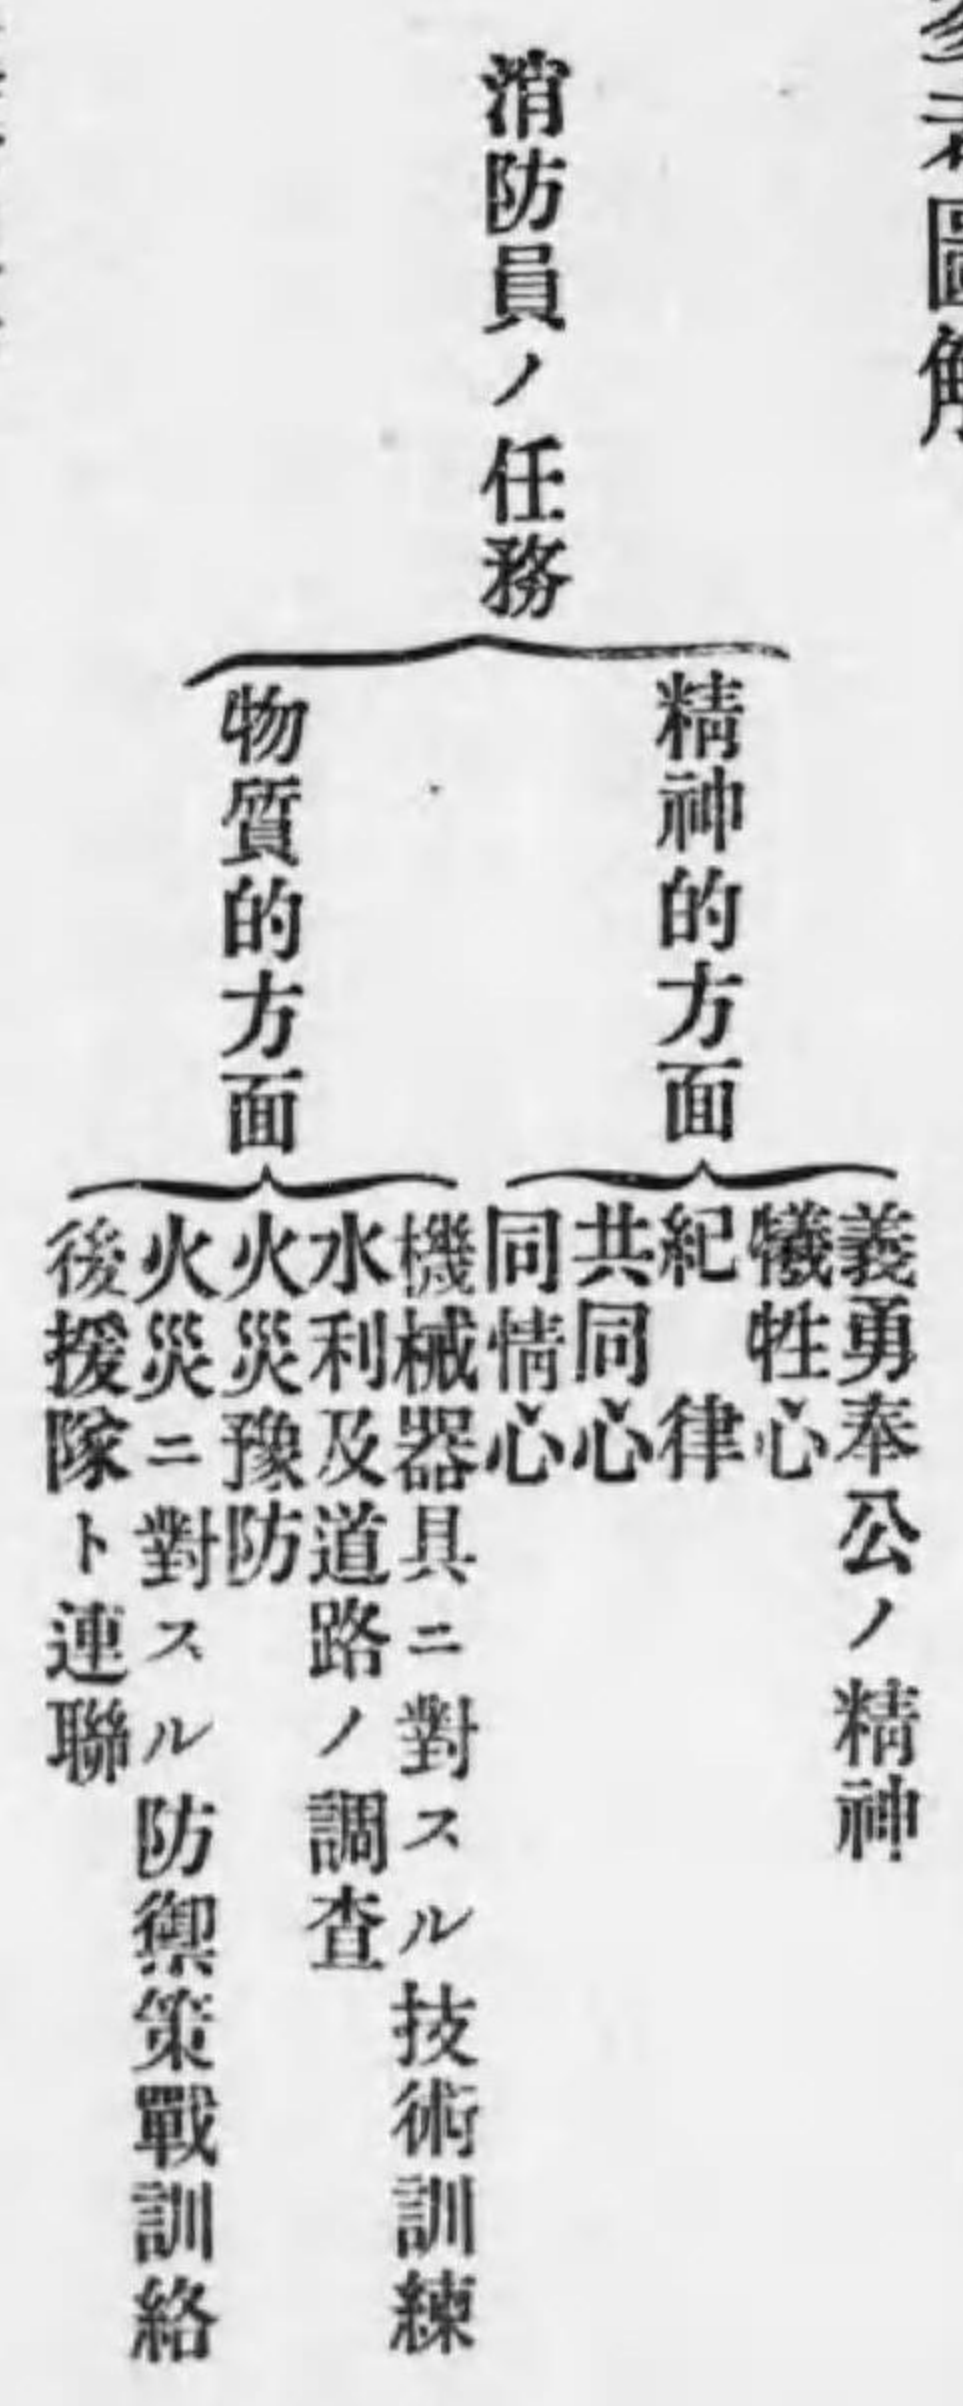 圖解
消防員ノ任務
精神的方面
義勇奉公ノ精神
犧牲心
紀律
共同心
同情心
物質的方面
機械器具ニ對スル技術訓練
水利及道路ノ調査
火災豫防
火災ニ對スル防禦策戰訓絡
後援隊ト連聯